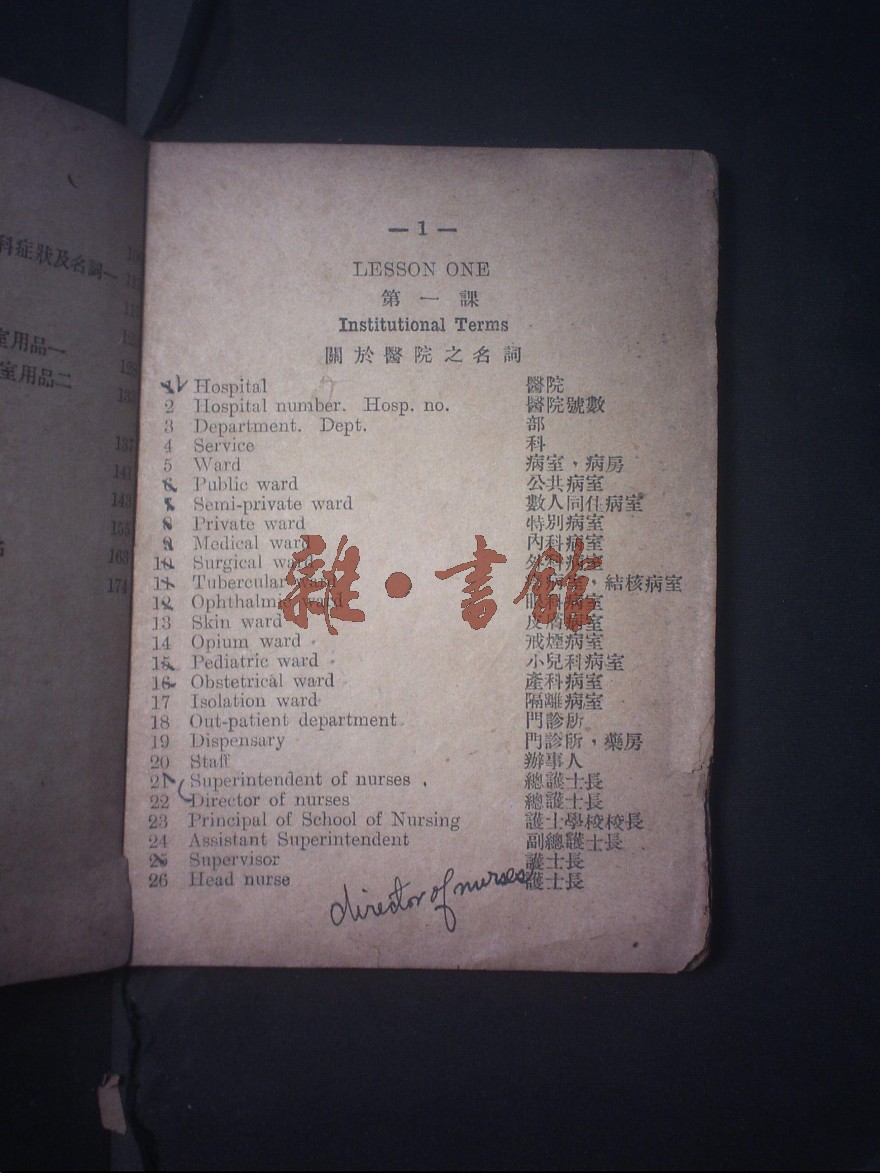 科症狀及名詞一
室用品一
室用品二
137
141
143
155
163
174
— 1 —
LESSON ONE
第一課
Institutional Terms
關於醫院之名詞
1 Hospital 醫院
2 Hospital number. Hosp. no. 醫院號數
3 Department. Dept. 部
4 Service 科
5 Ward 病室，病房
6 Public ward 公共病室
7 Semi-private ward 數人同住病室
8 Private ward 特別病室
9 Medical ward 內科病室
10 Surgical ward 外科病室
11 Tubercular ward 病室，結核病室
12 Ophthalmic ward 眼科病室
13 Skin ward 皮膚病室
14 Opium ward 戒煙病室
15 Pediatric ward 小兒科病室
16 Obstetrical ward 產科病室
17 Isolation ward 隔離病室
18 Out-patient department 門診所
19 Dispensary 門診所，藥房
20 Staff 辦事人
21 Superintendent of nurses 總護士長
22 Director of nurses 總護士長
23 Principal of School of Nursing 護士學校校長
24 Assistant Superintendent 副總護士長
25 Supervisor 護士長
26 Head nurse 護士長
director of nurses
雜·書館